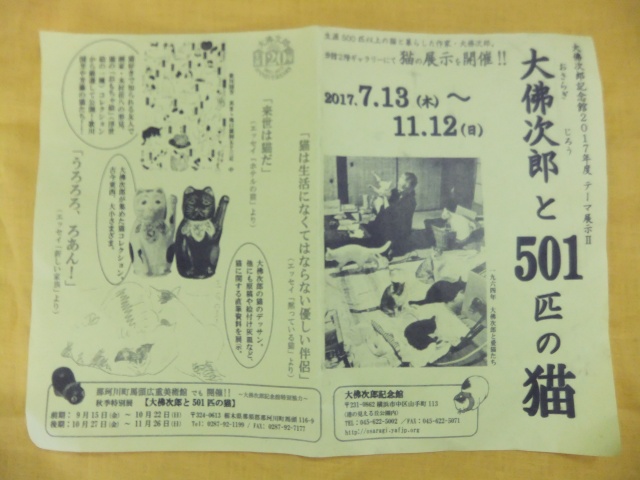 大佛次郎記念館2017年度 テーマ展示Ⅱ
大佛次郎と501匹の猫
おさらぎ じろう
生涯500匹以上の猫と暮らした作家・大佛次郎。
猫の展示を開催!!
2017.7.13(木)～
11.12(日)
一九六四年 大佛次郎と愛猫たち
大佛次郎記念館
〒231-0862 横浜市中区山手町113
(港の見える丘公園内)
TEL：045-622-5002 / FAX：045-622-5071
http://osaragi.yafjp.org
「猫は生活になくてはならない優しい伴侶」
(エッセイ「黙っている猫」より)
「来世は猫だ」
大佛次郎
120
大佛次郎の猫のデッサン、
猫に関する直筆資料を展示。
大佛次郎が集めた猫コレクション。
古今東西、大小さまざま。
「うろろろ、ろあん!」
(エッセイ「新しい家族」より)
那珂川町馬頭広重美術館 でも 開催!!
秋季特別展 【大佛次郎と501匹の猫】
～大佛次郎記念館特別協力～
前期：9月15日(金)～10月22日(日)
後期：10月27日(金)～11月26日(日)
〒324-0613 栃木県那須郡那珂川町馬頭116-9
Tel：0287-92-1199 / FAX：0287-92-7177